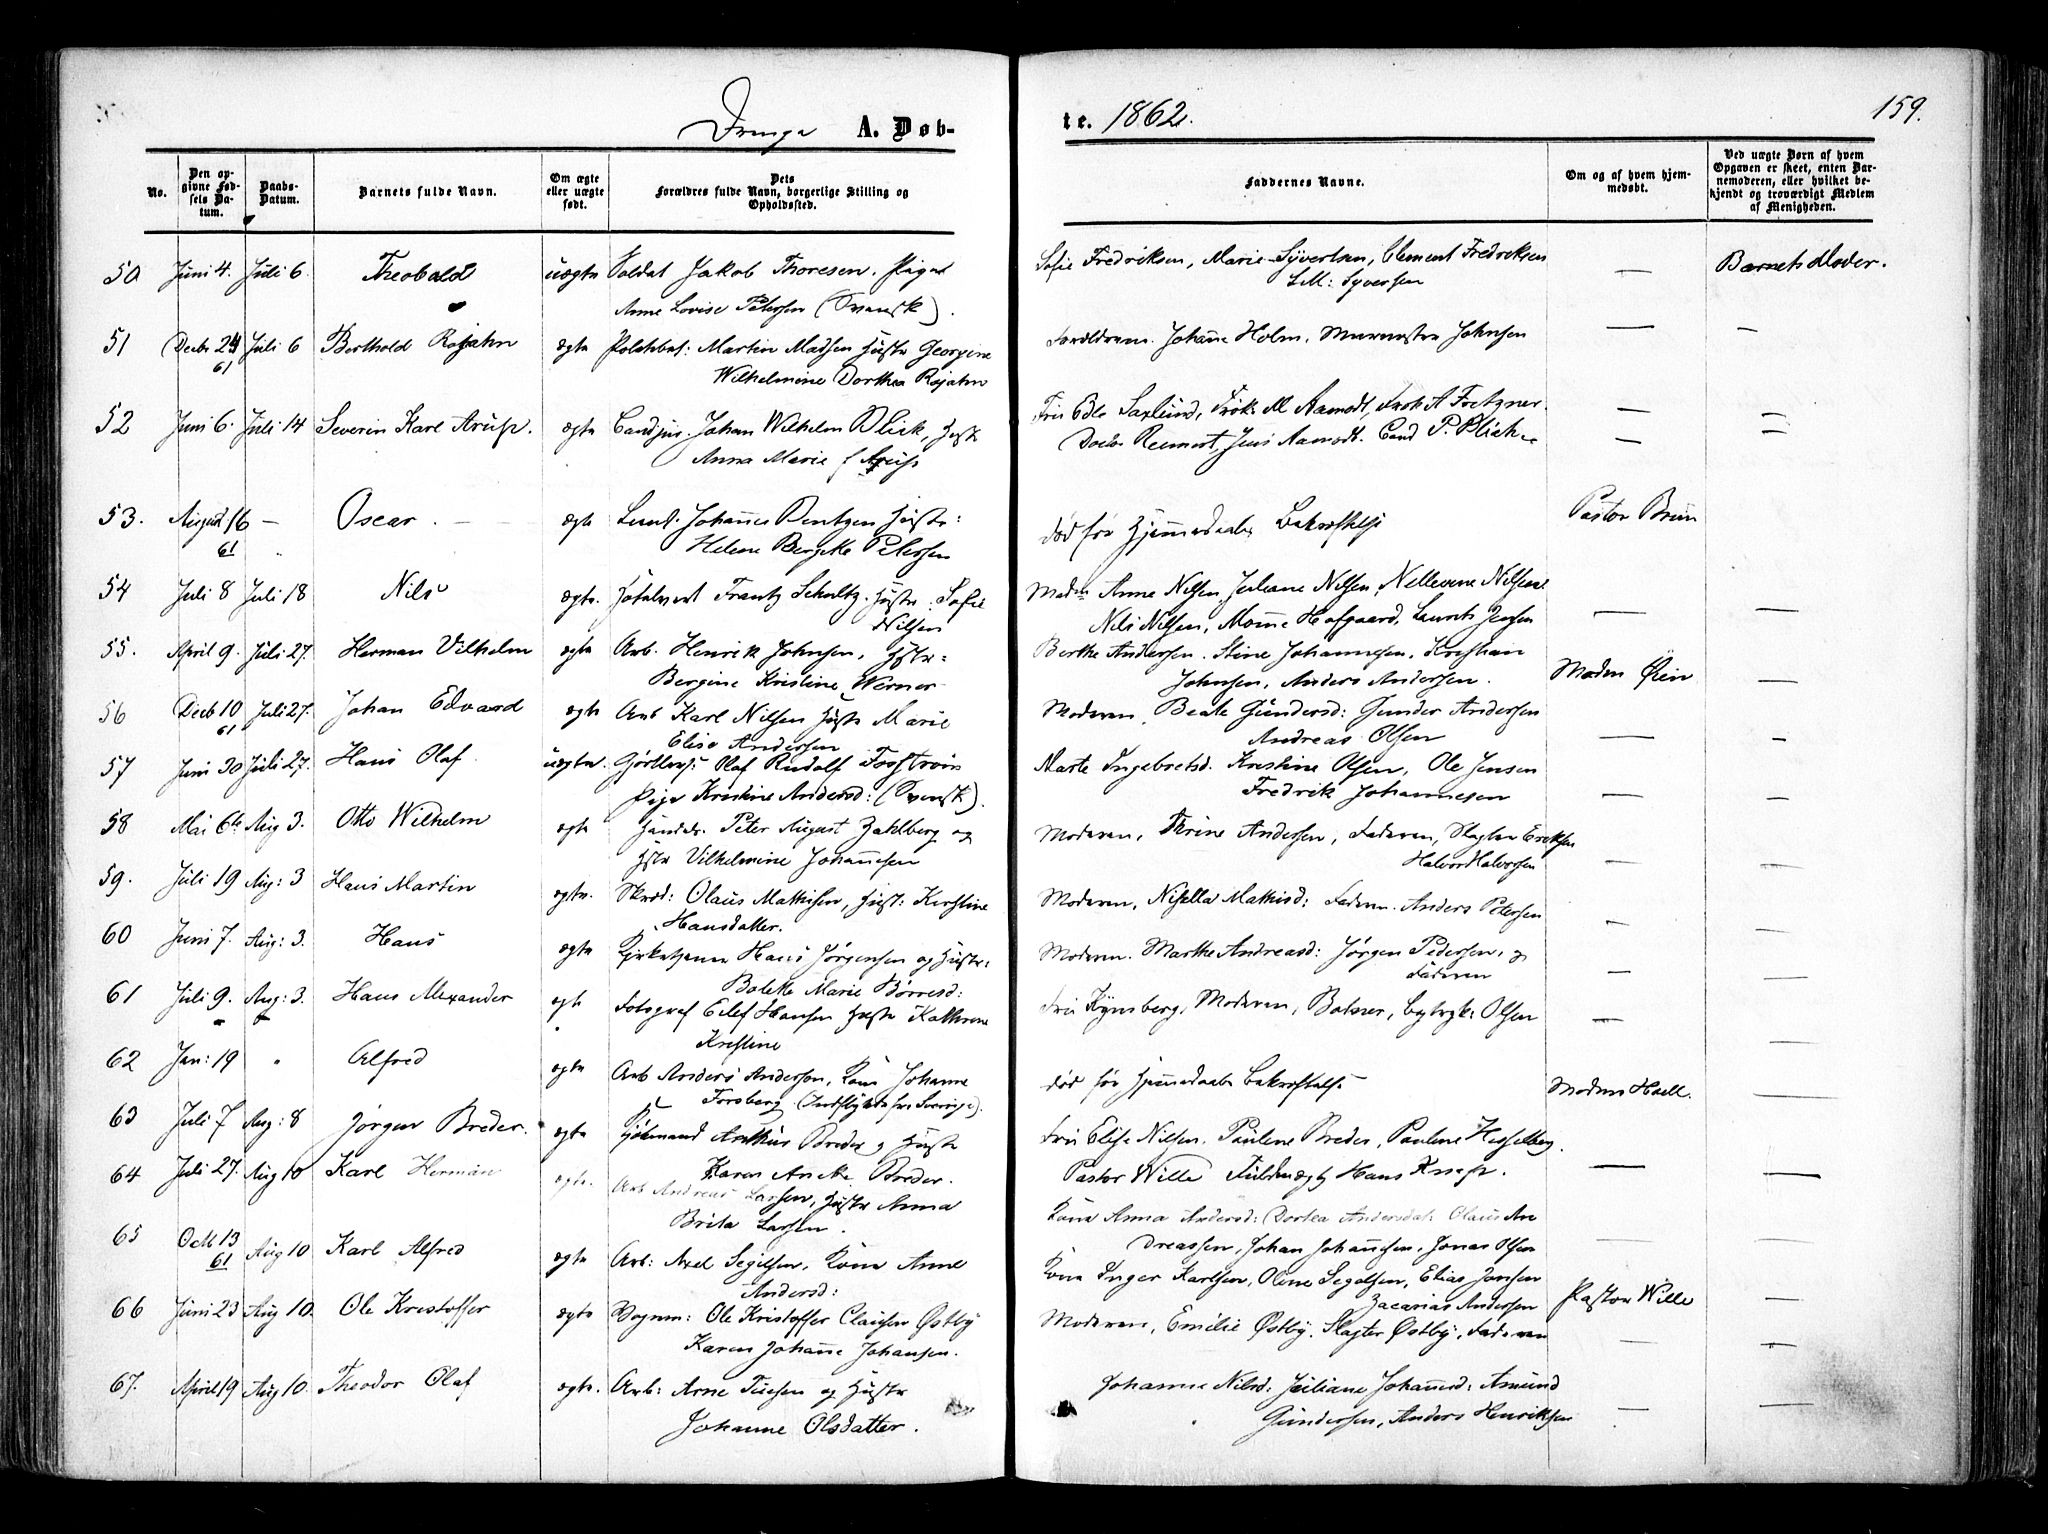 Drenge A. Døb-
te. 1862.
159.
No.
Den op-
givne Fød-
sels Da-
tum.
Daabs-
Datum.
Barnets fulde Navn.
Om ægte
eller uægte
født.
Dets
Forældres fulde Navn, borgerlige Stilling og
Opholdssted.
Faddernes Navne.
Om og af hvem hjem-
medøbt.
Ved uægte Børn af hvem
Opgaven er skeet, enten Bar-
nemoderen, eller hvilket be-
kjendt og troværdigt Medlem
af Menigheden.
50 Juni 4. Juli 6. Theobald uægte Soldat Jakob Thoresen. Pige Sofie Fredriksen, Marie Syvertsen, Clement Fredriksen — Barnets Moder.
Anne Lovise Petersen (Svensk). Syversen
51 Decbr 24 Juli 6 Berthold Rojahn ægte Martin Madsen Hustr Georgine Johanne Holm, Murmester Johnsen — —
61 Wilhelmine Dorthea Rojahn
52 Juni 6. Juli 14 Severin Karl Arup. ægte Candjur. Johan Wilhelm Blick, Hustr Fru Edle Saxlund, Frøk: M Aamodt, Frøk A Fretzner. — —
Anna Marie f Arup Jens Aamodt. Cand P. Blich — —
53. August 16 — Oscar. ægte Johannes Hustr: død før Hjemmedaabs Bekræftelse Pastor Brun
61 Helene Petersen
54 Juli 8 Juli 18 Nils ægte. Frantz Schultz. Hustr: Sofie Anne Nilsen, Juliane Nilsen, Nilsen
Nilsen Nils Nilsen, Hofgaard, Laurits Jensen — —
55. April 9. Juli 27. Herman Vilhelm ægte Arb. Henrik Johnsen, Hstr: Berthe Andersen. Stine Johannesen, Kristian
Bergine Kristine Werner Johnsen, Anders Andersen. Madm Øien —
56 Decb 10 Juli 27. Johan Edvard ægte Arb Karl Nilsen Hustr Marie Moderen, Beate Gundersd: Gunder Andersen
61 Elise Andersen Andreas Olsen — —
57 Juni 30 Juli 27. Hans Olaf uægte. Olaf Rudolf Marte Ingebretsd. Kristine Olsen, Ole Jensen
Pige Kristine Andersd: (Svensk). Fredrik Johannesen — —
58 Mai 6te Aug 3. Otto Wilhelm ægte Peter August Zahlberg og Moderen, Thrine Andersen, Faderen, Slagter Eriksen
Hstr Vilhelmine Johannesen Halvor Halvorsen —
59. Juli 19 Aug: 3 Hans Martin ægte. Skræd: Olaus Mathisen, Hust: Kirstine Moderen, Nisella Mathisd: Faderen. Anders Petersen
Hansdatter. — —
60 Juni 7. Aug: 3. Hans ægte Kirketjener Hans Jørgensen og Hustr: Moderen. Marthe Andreasd: Jørgen Pedersen, og
Bolette Marie Børresd: Faderen — —
61 Juli 9. Aug: 3. Hans Alexander ægte Fotograf Eilef Hansen Hustr Kathrine Fru Kynsberg, Moderen, Olsen —
Kristine —
62 Jan: 19 " Alfred ægte Arb Anders Anderson, Kone Johanne død før Hjemmedaabs Bekræftelse Madm Hoell.
Forsberg (Indflyttede fra Sverige). —
63 Juli 7 Aug: 8 Jørgen Breder. ægte Kjøbmand Anthur Breder og Hustr Fru Elise Nilsen. Pauline Breder, Pauline Hesselberg.
Karen Breder. Pastor Wille Fuldmægtg Hans Knap. — —
64 Juli 27. Aug 10 Karl Herman ægte. Arb Andreas Larsen, Hustr Anna Kone Anna Andersd: Dortea Andersdat: Olaus An
Brita Larsen. dreassen, Johan Johannesen, Jonas Olsen — —
65 Octb 13 Aug 10 Karl Alfred ægte Arb: Axel Segelsen, Kone Anne Kone Inger Karlsen, Oline Segelsen, Elias Jonsen
61 Andersd: Zacarias Andersen Pastor Wille —
66 Juni 23 Aug 10. Ole Kristoffer ægte Vognm: Ole Kristoffer Clausen Østby Moderen, Emilie Østby, Slagter Østby, Faderen
Karen Johanne Johansen. — —
67. April 19 Aug 10. Theodor Olaf ægte. Arb: Arne Tuesen og Hustr Johanne Nilsd: Juliane Johannesd: Amund
Johanne Olsdatter. Gundersen, Anders Henriksen — —